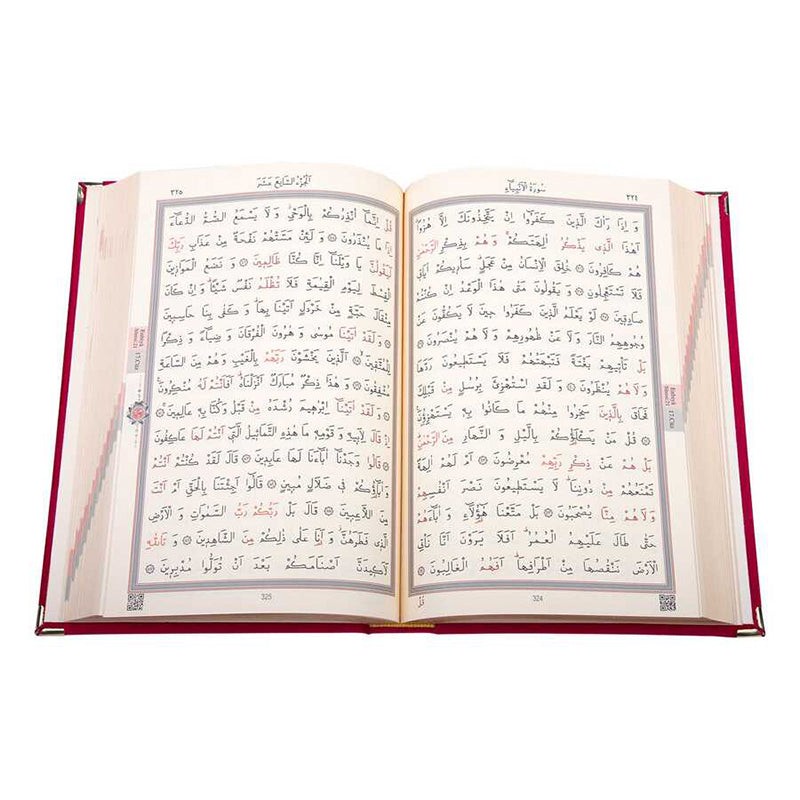 سُورَةُ الْاَنْبِيَاءِ
٣٢٤
وَ اِذَا رَاٰكَ الَّذ۪ينَ كَفَرُٓوا اِنْ يَتَّخِذُونَكَ اِلَّا هُزُوًا
اَهٰذَا الَّذ۪ي يَذْكُرُ اٰلِهَتَكُمْۚ وَ هُمْ بِذِكْرِ الرَّحْمٰنِ
هُمْ كَافِرُونَ ﴿٣٦﴾ خُلِقَ الْاِنْسَانُ مِنْ عَجَلٍۜ سَاُر۪يكُمْ اٰيَات۪ي
فَلَا تَسْتَعْجِلُونِ ﴿٣٧﴾ وَ يَقُولُونَ مَتٰى هٰذَا الْوَعْدُ اِنْ كُنْتُمْ
صَادِق۪ينَ ﴿٣٨﴾ لَوْ يَعْلَمُ الَّذ۪ينَ كَفَرُوا ح۪ينَ لَا يَكُفُّونَ عَنْ
وُجُوهِهِمُ النَّارَ وَ لَا عَنْ ظُهُورِهِمْ وَ لَا هُمْ يُنْصَرُونَ ﴿٣٩﴾
بَلْ تَاْت۪يهِمْ بَغْتَةً فَتَبْهَتُهُمْ فَلَا يَسْتَط۪يعُونَ رَدَّهَا
وَ لَا هُمْ يُنْظَرُونَ ﴿٤٠﴾ وَ لَقَدِ اسْتُهْزِئَ بِرُسُلٍ مِنْ قَبْلِكَ
فَحَاقَ بِالَّذ۪ينَ سَخِرُوا مِنْهُمْ مَا كَانُوا بِه۪ يَسْتَهْزِؤُ۫نَ
﴿٤١﴾ قُلْ مَنْ يَكْلَؤُ۬كُمْ بِالَّيْلِ وَ النَّهَارِ مِنَ الرَّحْمٰنِۜ
بَلْ هُمْ عَنْ ذِكْرِ رَبِّهِمْ مُعْرِضُونَ ﴿٤٢﴾ اَمْ لَهُمْ اٰلِهَةٌ
تَمْنَعُهُمْ مِنْ دُونِنَاۜ لَا يَسْتَط۪يعُونَ نَصْرَ اَنْفُسِهِمْ
وَ لَا هُمْ مِنَّا يُصْحَبُونَ ﴿٤٣﴾ بَلْ مَتَّعْنَا هٰٓؤُ۬لَٓاءِ وَ اٰبَٓاءَهُمْ
حَتّٰى طَالَ عَلَيْهِمُ الْعُمُرُۜ اَفَلَا يَرَوْنَ اَنَّا نَاْتِي
الْاَرْضَ نَنْقُصُهَا مِنْ اَطْرَافِهَاۜ اَفَهُمُ الْغَالِبُونَ ﴿٤٤﴾
قُلْ
324
الْجُزْءُ السَّابِعَ عَشَرَ
٣٢٥
قُلْ اِنَّمَٓا اُنْذِرُكُمْ بِالْوَحْيِۘ وَ لَا يَسْمَعُ الصُّمُّ الدُّعَٓاءَ
اِذَا مَا يُنْذَرُونَ ﴿٤٥﴾ وَ لَئِنْ مَسَّتْهُمْ نَفْحَةٌ مِنْ عَذَابِ رَبِّكَ
لَيَقُولُنَّ يَا وَيْلَنَٓا اِنَّا كُنَّا ظَالِم۪ينَ ﴿٤٦﴾ وَ نَضَعُ الْمَوَاز۪ينَ
الْقِسْطَ لِيَوْمِ الْقِيٰمَةِ فَلَا تُظْلَمُ نَفْسٌ شَيْـًٔاۜ وَ اِنْ كَانَ
مِثْقَالَ حَبَّةٍ مِنْ خَرْدَلٍ اَتَيْنَا بِهَاۜ وَ كَفٰى بِنَا حَاسِب۪ينَ
﴿٤٧﴾ وَ لَقَدْ اٰتَيْنَا مُوسٰى وَ هٰرُونَ الْفُرْقَانَ وَ ضِيَٓاءً وَ ذِكْرًا
لِلْمُتَّق۪ينَۙ ﴿٤٨﴾ اَلَّذ۪ينَ يَخْشَوْنَ رَبَّهُمْ بِالْغَيْبِ وَ هُمْ مِنَ السَّاعَةِ
مُشْفِقُونَ ﴿٤٩﴾ وَ هٰذَا ذِكْرٌ مُبَارَكٌ اَنْزَلْنَاهُۜ اَفَاَنْتُمْ لَهُ مُنْكِرُونَ۟ ﴿٥٠﴾
وَ لَقَدْ اٰتَيْنَٓا اِبْرٰه۪يمَ رُشْدَهُ مِنْ قَبْلُ وَ كُنَّا بِه۪ عَالِم۪ينَۚ ﴿٥١﴾
اِذْ قَالَ لِاَب۪يهِ وَ قَوْمِه۪ مَا هٰذِهِ التَّمَاث۪يلُ الَّت۪ٓي اَنْتُمْ لَهَا عَاكِفُونَ
﴿٥٢﴾ قَالُوا وَجَدْنَٓا اٰبَٓاءَنَا لَهَا عَابِد۪ينَ ﴿٥٣﴾ قَالَ لَقَدْ كُنْتُمْ اَنْتُمْ
وَ اٰبَٓاؤُ۬كُمْ ف۪ي ضَلَالٍ مُب۪ينٍ ﴿٥٤﴾ قَالُٓوا اَجِئْتَنَا بِالْحَقِّ اَمْ اَنْتَ
مِنَ اللَّاعِب۪ينَ ﴿٥٥﴾ قَالَ بَلْ رَبُّكُمْ رَبُّ السَّمٰوَاتِ وَ الْاَرْضِ
الَّذ۪ي فَطَرَهُنَّۘ وَ اَنَا۬ عَلٰى ذٰلِكُمْ مِنَ الشَّاهِد۪ينَ ﴿٥٦﴾ وَ تَاللّٰهِ
لَاَك۪يدَنَّ اَصْنَامَكُمْ بَعْدَ اَنْ تُوَلُّوا مُدْبِر۪ينَ ﴿٥٧﴾
325